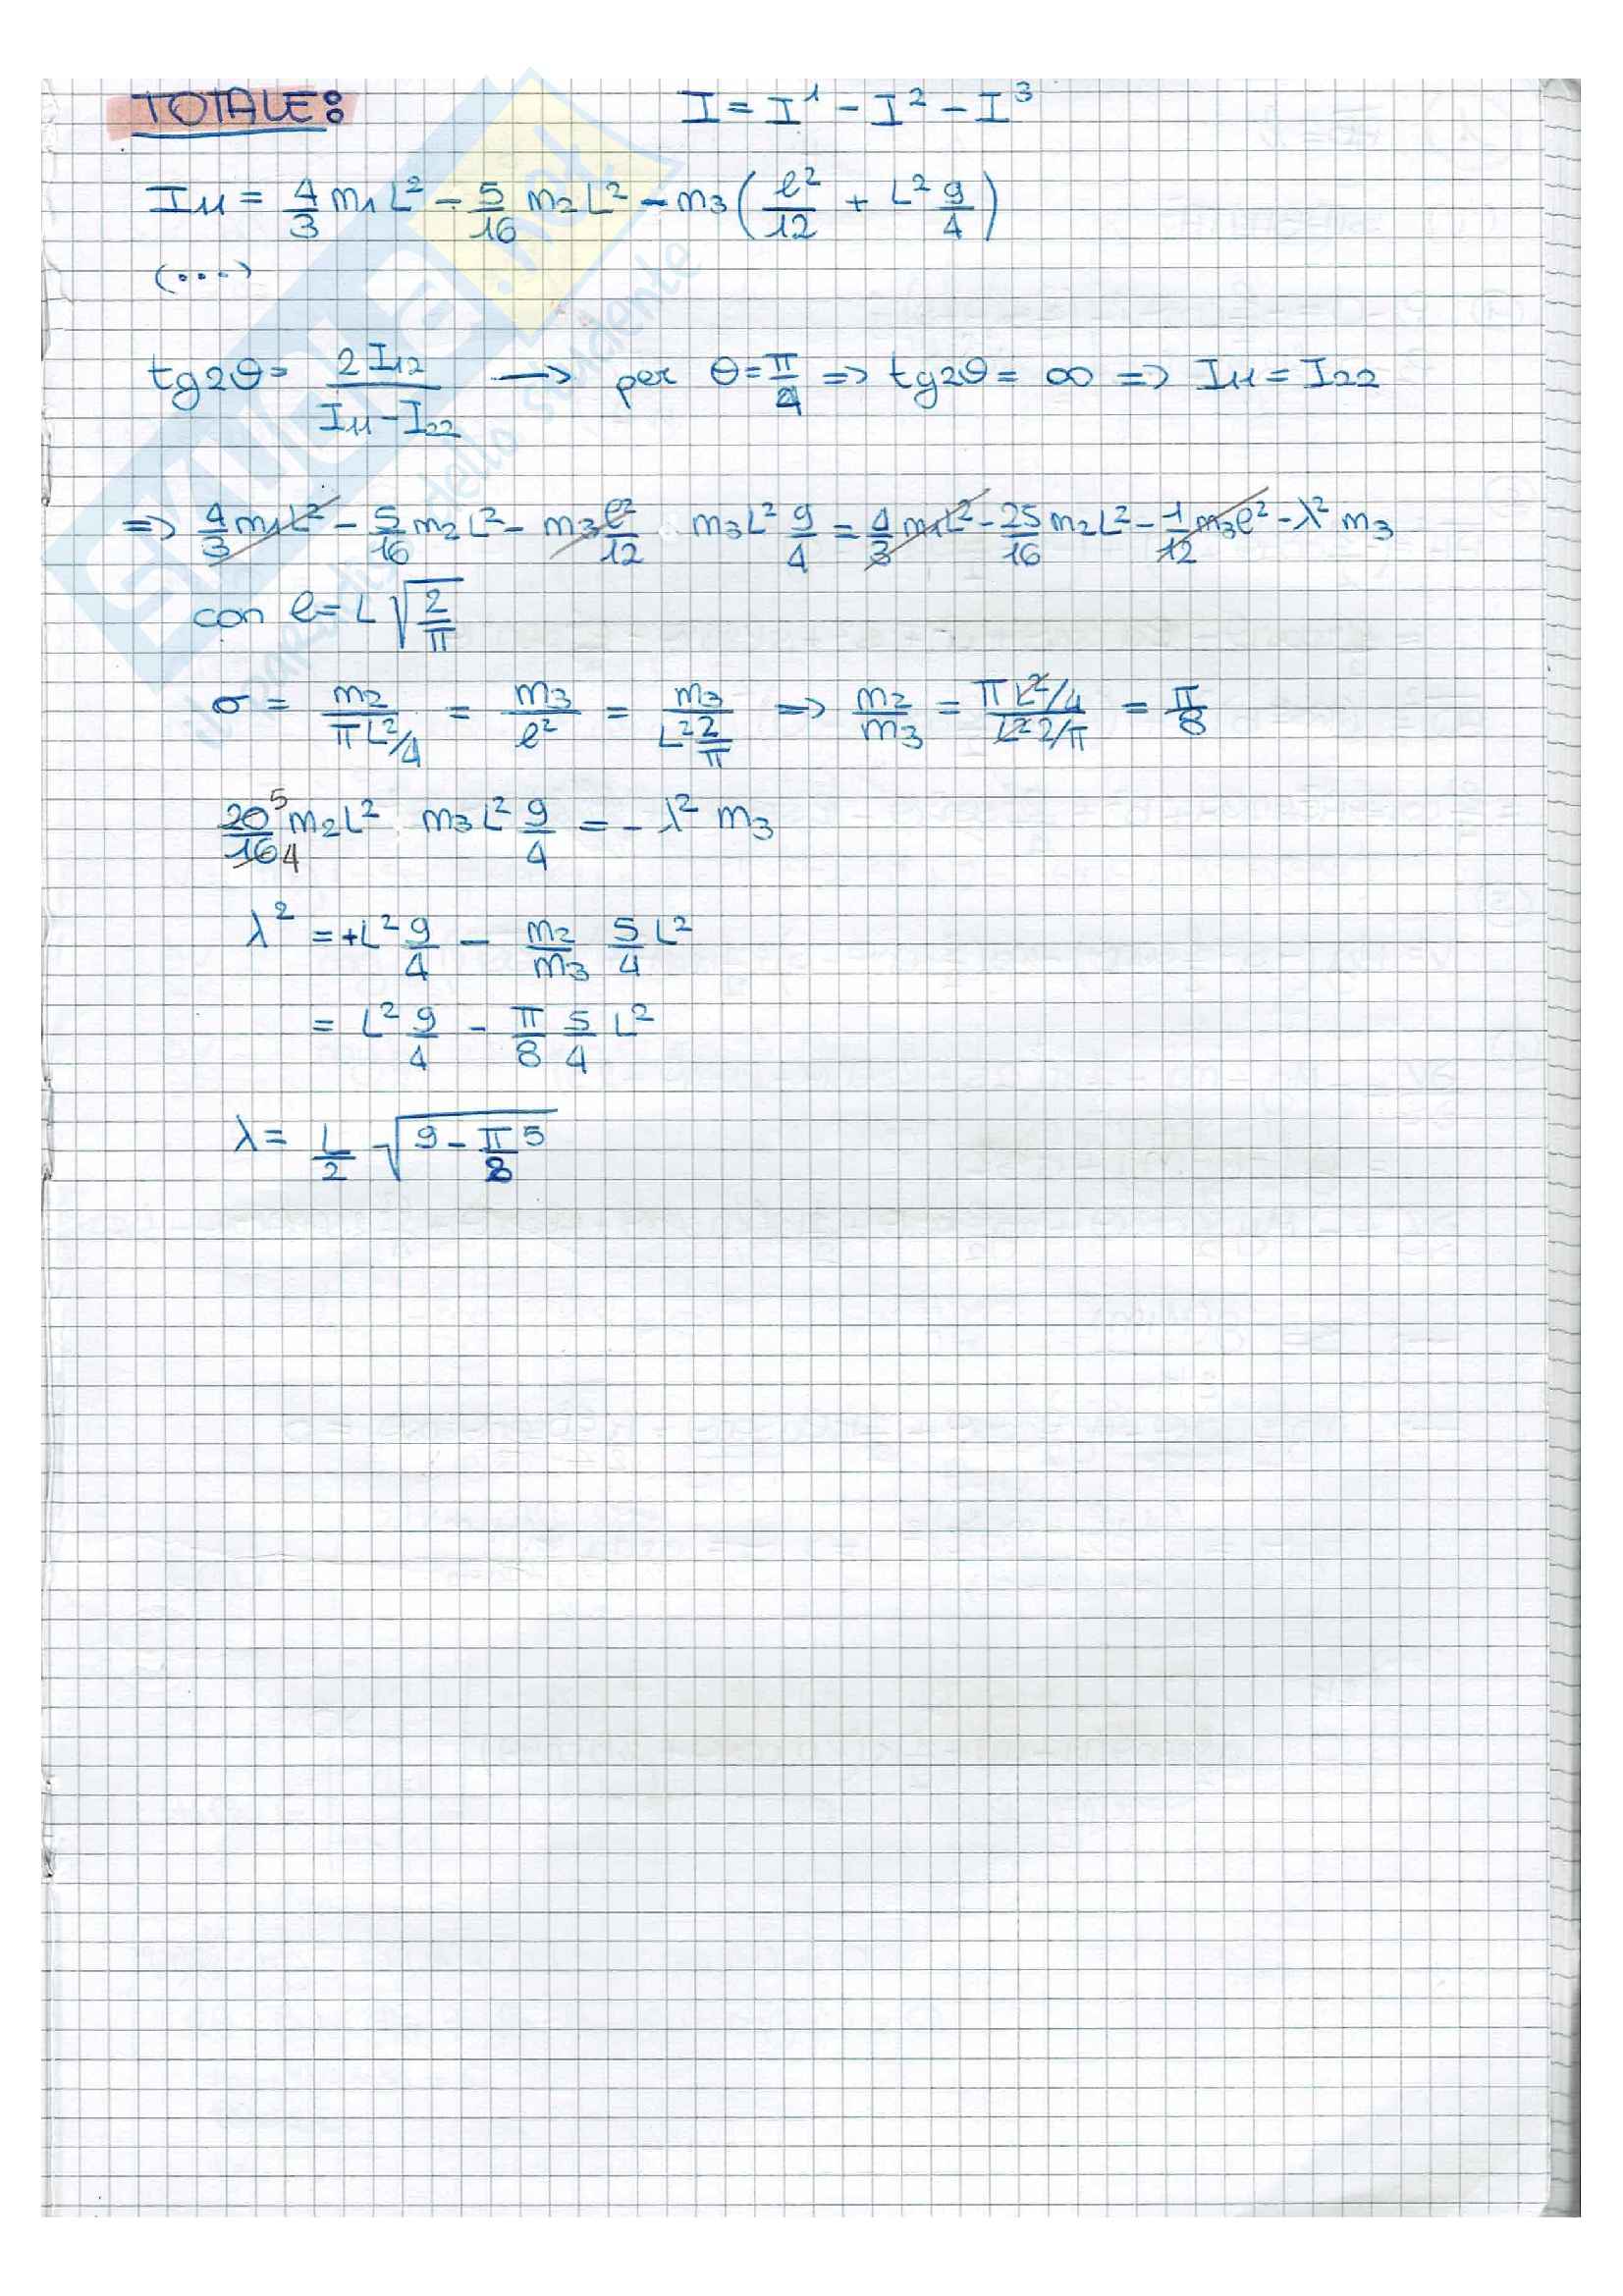 TOTALE: I = I¹ - I² - I³
I₁₁ = 4/3 m₁L² - 5/16 m₂L² - m₃(ℓ²/12 + L² 9/4)
(...)
tg2θ = 2I₁₂/(I₁₁-I₂₂) → per θ=π/4 => tg2θ = ∞ => I₁₁ = I₂₂
=> 4/3 m₁L² - 5/16 m₂L² - m₃ℓ²/12 m₃L² 9/4 = 4/3 m₁L² - 25/16 m₂L² - 1/12 m₃ℓ² - λ² m₃
con ℓ = L √(2/π)
σ = m₂/(πL²/4) = m₃/ℓ² = m₃/(L² 2/π) => m₂/m₃ = (πL²/4)/(L² 2/π) = π/8
20/16 5/4 m₂L² m₃L² 9/4 = - λ² m₃
λ² = +L² 9/4 - m₂/m₃ 5/4 L²
= L² 9/4 - π/8 5/4 L²
λ = L/2 √(9 - π/8 5)